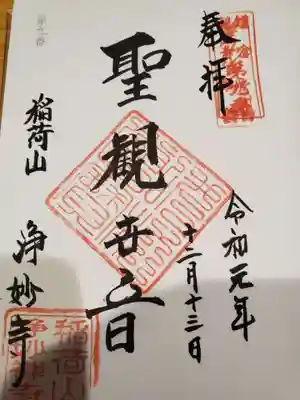 奉拝
令和元年
十二月十三日
聖観世音
稲荷山
浄妙寺